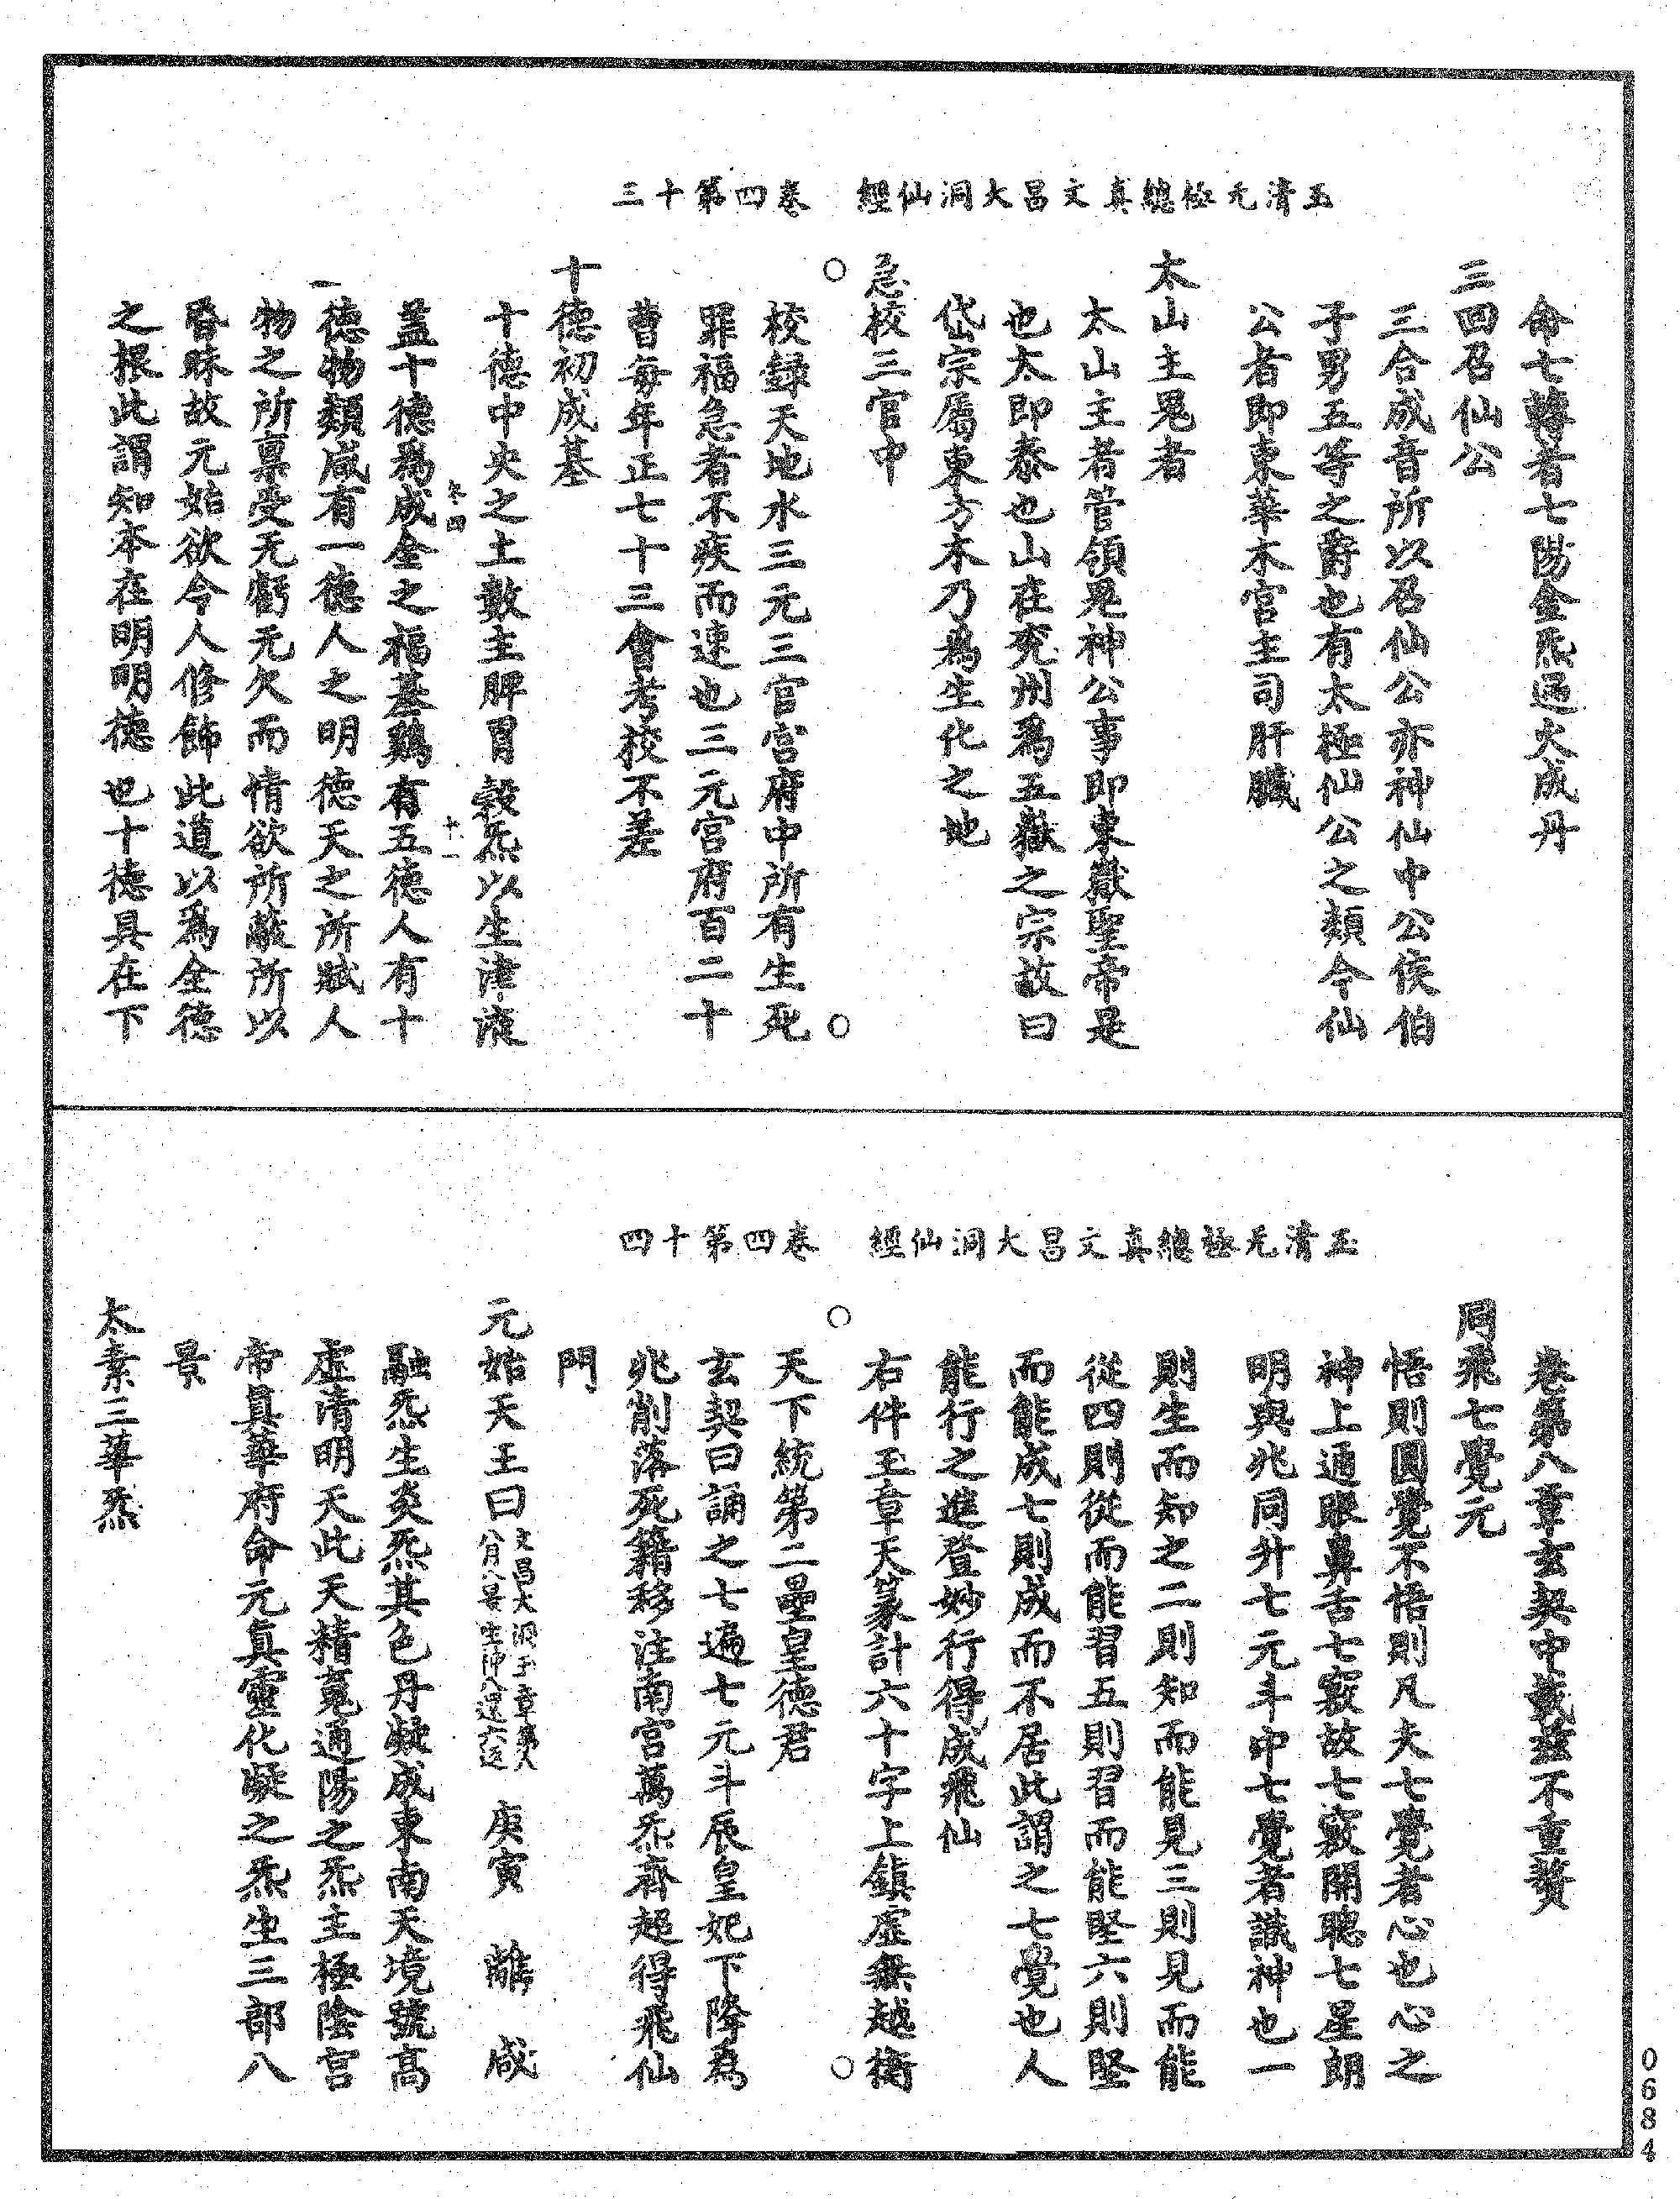 玉清无極總真文昌大洞仙經　卷四第十三
命七轉者七陽金炁逼火成丹
三回召仙公
三合成音所以召仙公亦神仙中公侯伯
子男五等之爵也有太極仙公之類今仙
公者即東華木宮主司肝臟
太山主鬼者
太山主者管領鬼神公事即東嶽聖帝是
也太即泰也山在兗州爲五嶽之宗故曰
岱宗屬東方木乃爲生化之地
急校三官中
校録天地水三元三官宮府中所有生死
罪福急者不疾而速也三元宮府百二十
曹每年正七十三會考校不差
十德初成基
十德中央之土數主脾胃穀炁以生津液
卷四
十一
蓋十德爲成全之福基鷄有五德人有十
德物類咸有一德人之明德天之所賦人
物之所稟受无虧无欠而情欲所蔽所以
昏昧故元始欲令人修飾此道以爲全德
之根此謂知本在明明德也十德具在下
玉清无極總真文昌大洞仙經　卷四第十四
卷第八章玄契中載茲不重贅
同飛七覺元
悟則圓覺不悟則凡夫七覺者心也心之
神上通眼鼻舌七竅故七竅開聰七星朗
明與兆同升七元斗中七覺者識神也一
則生而知之二則知而能見三則見而能
從四則從而能習五則習而能堅六則堅
而能成七則成而不居此謂之七覺也人
能行之進登妙行得成飛仙
右件玉章天篆計六十字上鎮虛無越衡
天下統第二壘皇德君
玄契曰誦之七遍七元斗辰皇妃下降為
兆削落死籍移注南宮萬炁齊起得飛仙
門
元始天王曰文昌大洞玉章第八
庚寅　離　咸
融炁生炎炁其色丹凝成東南天境號高
虛清明天此天精烹通陽之炁主極陰宮
帝眞華府命元眞靈化凝之炁生三部八
景
太素三華炁
0684